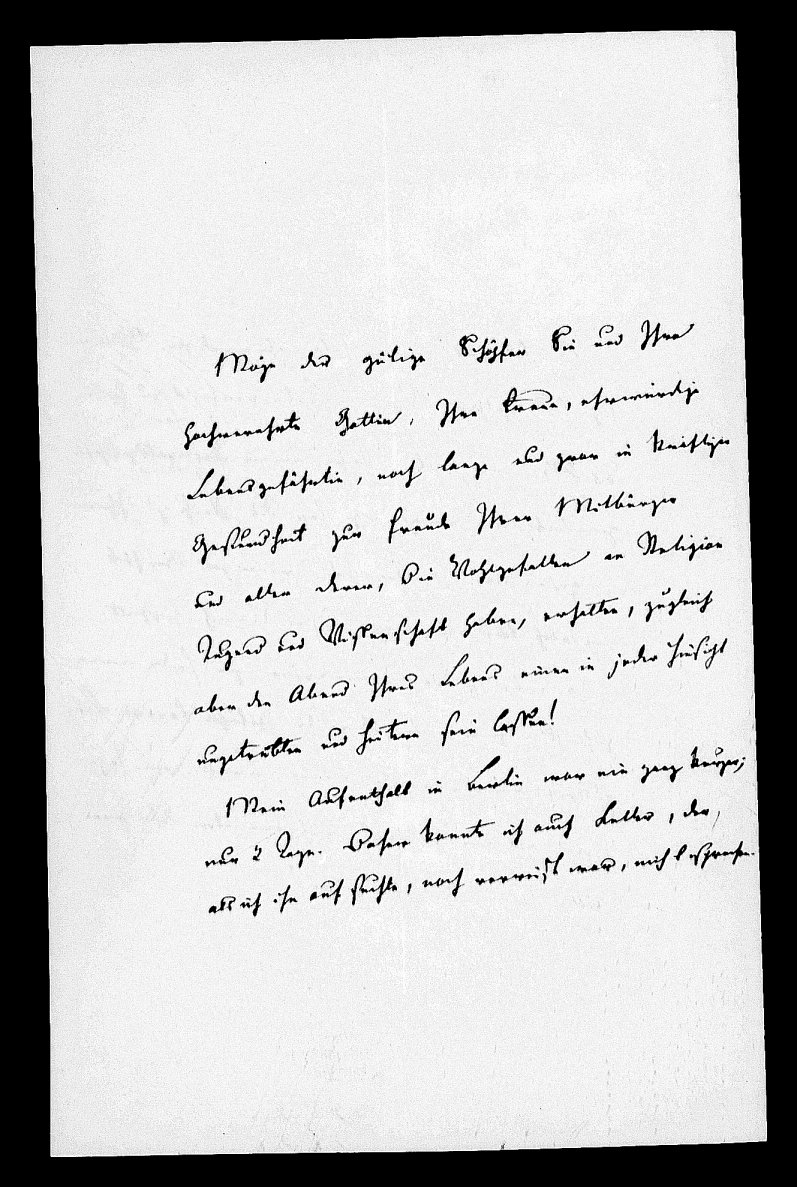 Möge der gütige Schöpfer Sie und Ihre
hochverehrte Gattin, Ihre treue, ehrwürdige
Lebensgefährtin, noch lange und zwar in kräftiger
Gesundheit zur Freude Ihrer Mitbürger
und aller derer, die Wohlgefallen an Religion
Tugend und Wissenschaft haben, erhalten, zugleich
aber den Abend Ihres Lebens einen in jeder Hinsicht
ungetrübten und heitern sein lassen!
Mein Aufenthalt in Berlin war ein ganz kurzer;
nur 2 Tage. Daher konnte ich auch Letter, der,
als ich ihn aufsuchte, noch verreist war, nicht sprechen.